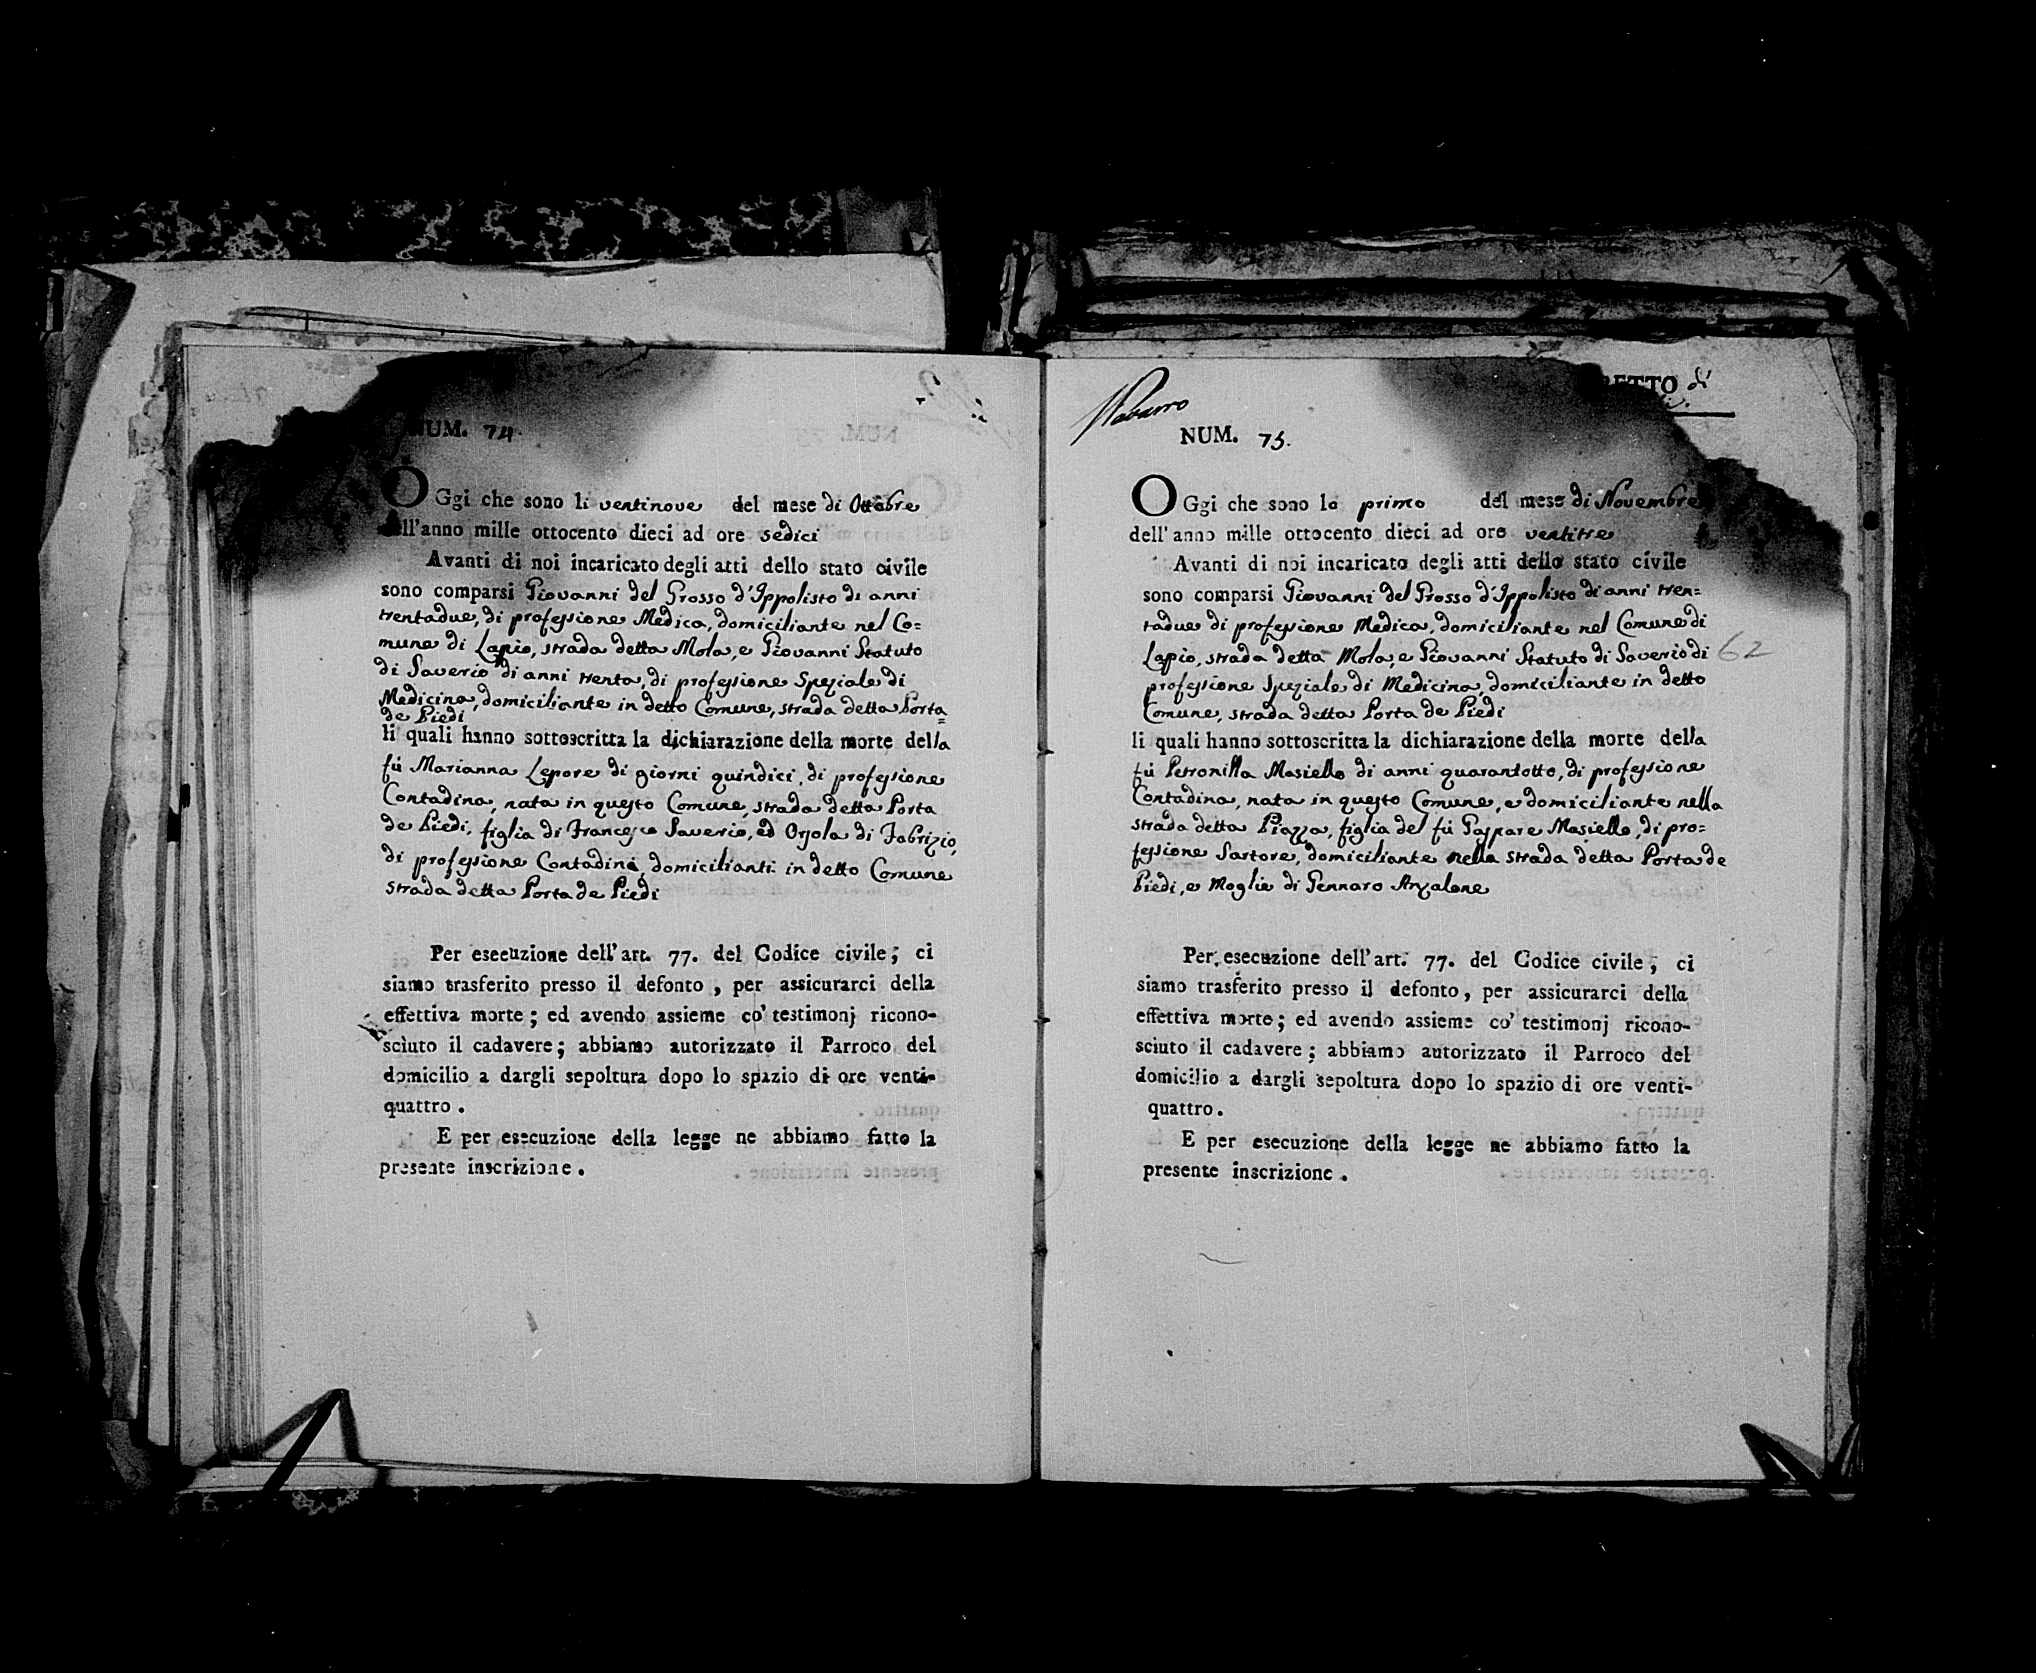 NUM. 74.
OGgi che sono li ventinove del mese di Ottobre
dell'anno mille ottocento dieci ad ore sedici
Avanti di noi incaricato degli atti dello stato civile
sono comparsi Giovanni del Grosso d'Ippolisto di anni
trentadue, di professione Medica, domiciliante nel Co=
mune di Lapio, strada detta Mola, e Giovanni Statuto
di Saverio di anni trenta, di professione Speziale di
Medicina, domiciliante in detto Comune, strada detta Porta=
de Piedi
li quali hanno sottoscritta la dichiarazione della morte della
fù Marianna Lepore di giorni quindici, di professione
Contadina, nata in questo Comune, strada detta Porta
de Piedi, figlia di Francesco Saverio, ed Orsola di Fabrizio,
di professione Contadini, domicilianti in detto Comune
strada detta Porta de Piedi
Per esecuzione dell'art. 77. del Codice civile; ci
siamo trasferito presso il defonto, per assicurarci della
effettiva morte; ed avendo assieme co' testimonj ricono-
sciuto il cadavere; abbiamo autorizzato il Parroco del
domicilio a dargli sepoltura dopo lo spazio di ore venti-
quattro.
E per esecuzione della legge ne abbiamo fatto la
presente inscrizione.
RETTO di
Nabarro
NUM. 75.
OGgi che sono lo primo del mese di Novembre
dell'anno mille ottocento dieci ad ore ventitre
Avanti di noi incaricato degli atti dello stato civile
sono comparsi Giovanni del Grosso d'Ippolisto di anni tren=
tadue di professione Medica, domiciliante nel Comune di
Lapio, strada detta Mola, e Giovanni Statuto di Saverio di 62
professione Speziale di Medicina, domiciliante in detto
Comune, strada detta Porta de Piedi
li quali hanno sottoscritta la dichiarazione della morte della
fù Petronilla Masiello di anni quarantotto, di professione
Contadina, nata in questo Comune, e domiciliante nella
strada detta Piazza, figlia del fù Gaspare Masiello, di pro=
fessione Sartore, domiciliante nella strada detta Porta de
Piedi, e Moglie di Gennaro Anzalone
Per esecuzione dell'art. 77. del Codice civile; ci
siamo trasferito presso il defonto, per assicurarci della
effettiva morte; ed avendo assieme co' testimonj ricono-
sciuto il cadavere; abbiamo autorizzato il Parroco del
domicilio a dargli sepoltura dopo lo spazio di ore venti-
quattro.
E per esecuzione della legge ne abbiamo fatto la
presente inscrizione.